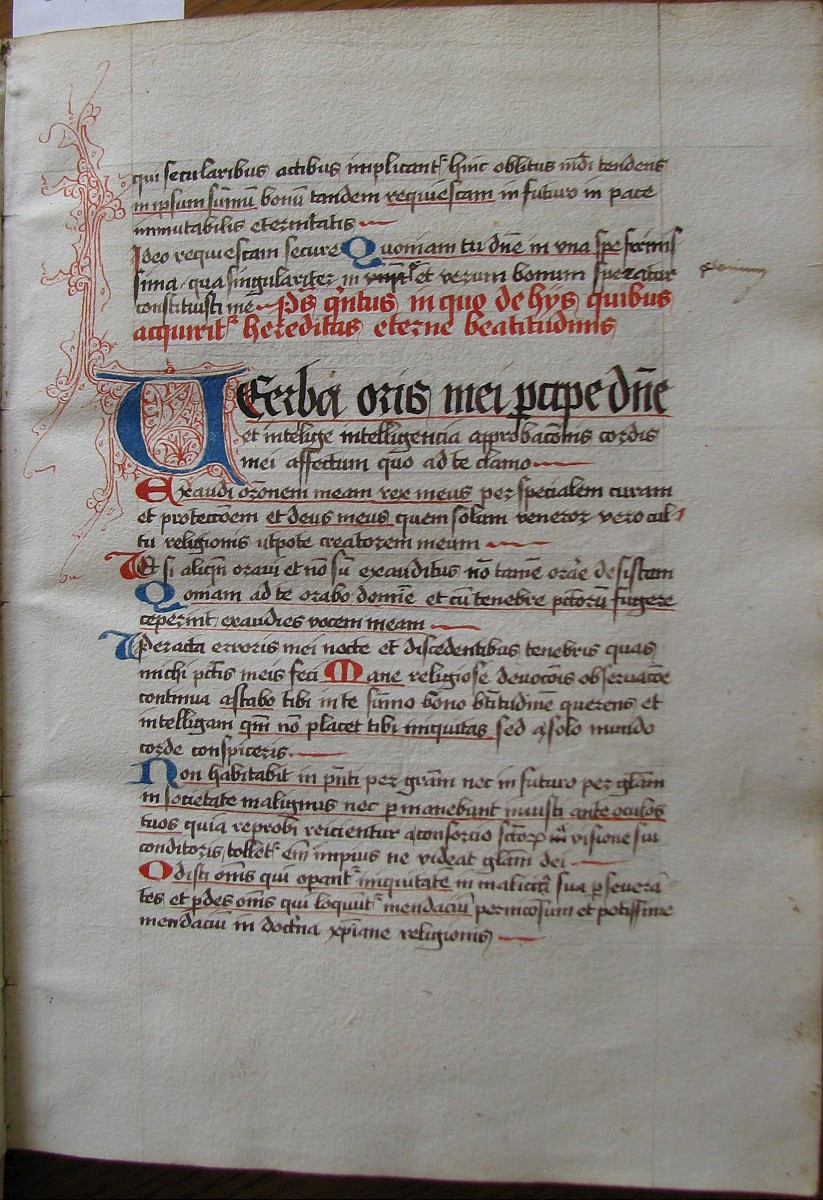 qui secularibus actibus implicant᷑ hinc oblitus mūdi tendens
in ipsum sūmū bonū tandem requiescam in futuro in pace
inmutabilis eternitatis
Ideo requiescam secure Quoniam tu dn̄e in vna spe firmis
sima qua singulariter in et verum bonum speratur
constituisti me Ps qn̄tus in quo de hijs quibus
acquirit᷑ hereditas eterne beatitudinis
UErba oris mei ꝑcipe dn̄e
et intelige intelligencia approbacōnis cordis
mei affectum quo ad te clamo
Exaudi orōnem meam rex meus per specialem curam
et proteccōem et deus meus quem solum veneror vero cul
tu religionis utpote creatorem meum
Et si aliqn̄ oraui et nō sū exauditus nō tamē orar̄e desistam
Qoniam ad te orabo domine et cū tenebre pctorū fugere
ceperint exaudies vocem meam
Peracta erroris mei nocte et discedentibus tenebris quas
michi pctīs meis feci Mane religiose deuocōnis obseruacōe
continua astabo tibi in te sūmo bono btītudinē querens et
intelligam qm̄ nō placet tibi iniquitas sed a solo mundo
corde conspiceris
Non habitabit in pn̄ti per grām nec in futuro per glām
in societate malignus nec ꝑmanebunt iniusti ante oculos
tuos quia reprobi reicientur a consorcio sctōꝝ visione sui
conditoris tollet᷑ em̄ impius ne videat glām dei
Odisti om̄s qui opant᷑ iniquitatē in malicia sua ꝑseuerā
tes et ꝑdes om̄s qui loquūt᷑ mendaciū perniciosum et potissime
mendaciū in doctrīa xp̄iane religionis